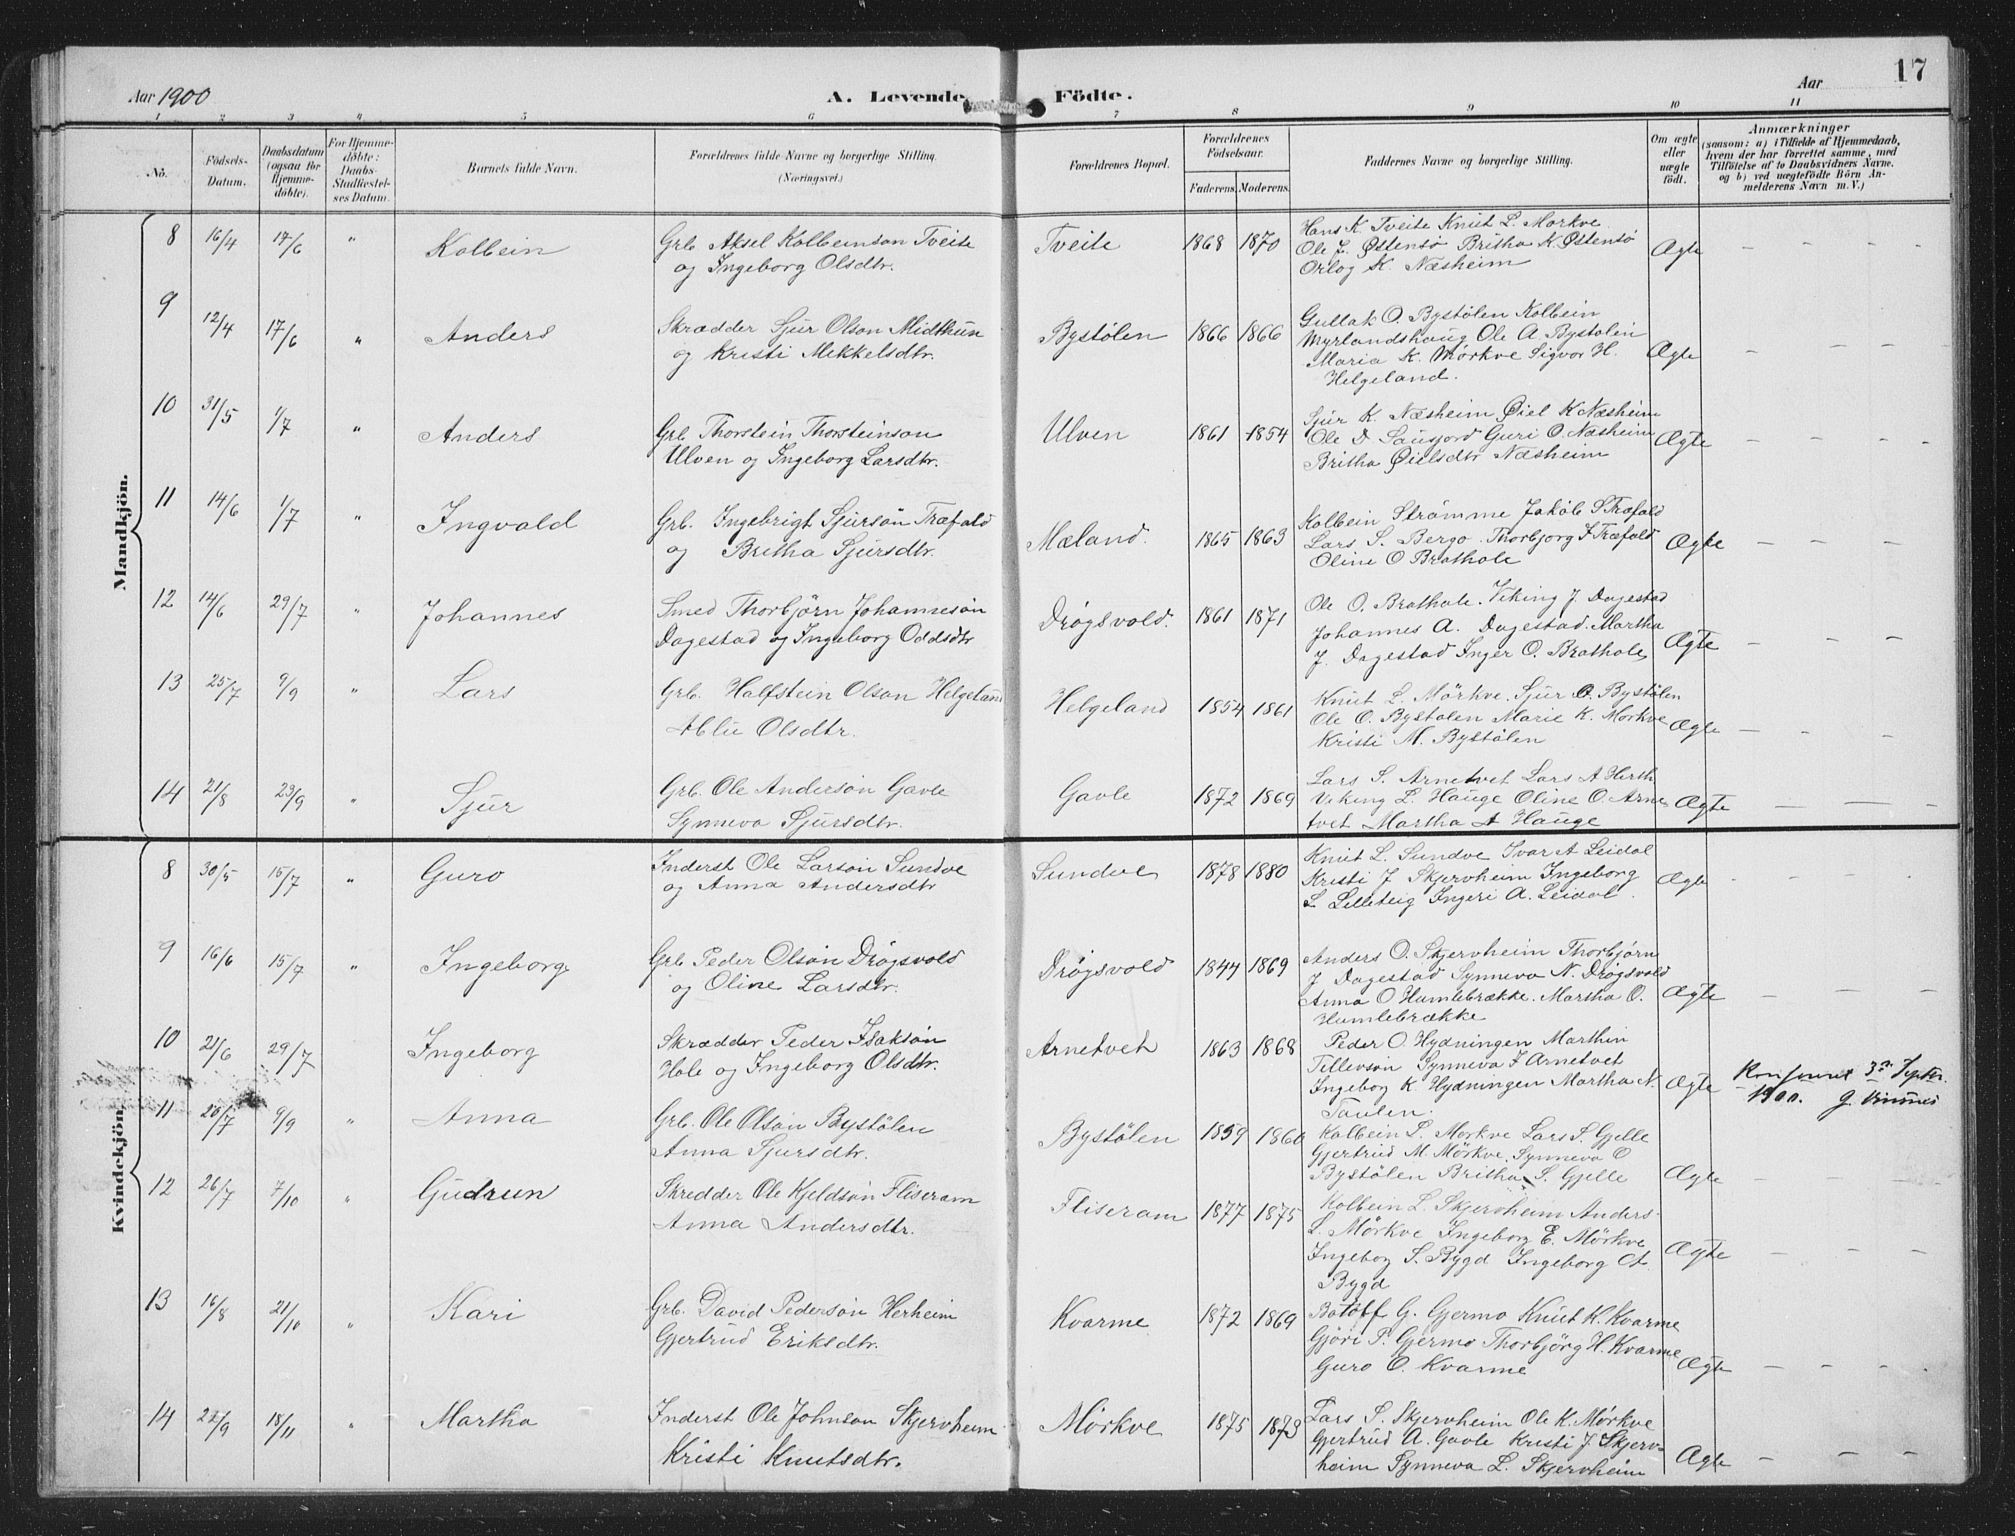 Aar 1900
A. Levende Födte.
Aar
17
1 2 3 4 5 6 7 8 9 10 11
No.
Födsels-Datum.
Daabsdatum (ogsaa for Hjemmedöbte).
For Hjemmedöbte: Daabs-Stadfæstelses Datum.
Barnets fulde Navn.
Forældrenes fulde Navne og borgerlige Stilling.
(Næringsvei.)
Forældrenes Bopæl.
Forældrenes Födselsaar.
Faderens. Moderens.
Faddernes Navne og borgerlige Stilling.
Om ægte eller uægte födt.
Anmærkninger
(saasom: a) i Tilfælde af Hjemmedaab, hvem der har forrettet samme, med Tilföielse af to Daabsvidners Navne. og b) ved uægtefödte Börn Anmelderens Navn m. V.)
Mandkjön.
8 16/4 17/6 " Kolbein Grb. Aksel Kolbeinson Tveite Tveite 1868 1870 Hans K Tveite Knut L. Mørkve
og Ingeborg Olsdtr. Ole J. Østensø Britha K Østensø Ægte – – – –
Orlog K. Næsheim
9 12/4 17/6 " Anders Skrædder Sjur Olson Midthun Bystølen 1866 1866 Gullak O. Bystølen Kolbein
og Kristi Mekkelsdtr. Myrlandshaug Ole A Bystølen
Maria K. Mørkve Sigvor H. Ægte – – – –
Helgeland.
10 31/5 1/7 " Anders Grb Thorstein Thorsteinson Ulven 1861 1854 Sjur K. Næsheim Øiel K Næsheim
Ulven og Ingeborg Larsdtr. Ole D. Sausjord Guri O. Næsheim Ægte – – – –
Britha Øielsdtr Næsheim
11 14/6 1/7 " Ingvald Grb. Ingebrigt Sjursøn Træfald Mæland. 1865 1863 Kolbein Strømme Jakob S Træfald
og Britha Sjursdtr. Lars S. Bergo. Thorbjorg I Træfald Ægte – – – –
Oline O Brathole
12 14/6 29/7 " Johannes Smed Thorbjørn Johannesøn Drøgsvold. 1861 1871 Ole O. Brathole. Viking J. Dagestad
Dagestad og Ingeborg Oddsdtr Johannes A. Dagestad. Martha
J. Dagestad Inger O. Brathole Ægte – – – –
13 25/7 9/9 " Lars Grb. Halfstein Olson Helgeland Helgeland 1854 1861 Knut L. Mørkve. Sjur O. Bystølen
Ablu Olsdtr. Ole O. Bystølen Marie K. Mørkve Ægte – – – –
Kristi M. Bystølen
14 21/8 23/9 " Sjur Grb. Ole Andersøn Gavle Gavle 1872 1869 Lars S. Arnetvet Lars A Herth
Synneva Sjursdtr. Viking L. Hauge Oline O. Arne Ægte – – – –
tvet Martha A Hauge
Kvindekjön.
8 30/5 15/7 " Guro Inderst Ole Larsøn Sundve Sundve 1878 1880 Knut L. Sundve Ivar A Leidal
og Anna Andersdtr Kristi J Skjervheim Ingeborg Ægte – – – –
L. Lilleteig Ingeri A. Leidal.
9 16/6 15/7 " Ingeborg Grb Peder Olsøn Drøgsvold Drøgsvold 1844 1869 Anders O. Skjervheim Thorbjørn
og Oline Larsdtr. J Dagestad Synneva N. Drøgsvold
Anna O Humlebrække. Martha O. Ægte – – – –
Humlebrække
10 21/6 29/7 Ingeborg Skrædder Peder Isaksøn Arnetvet 1863 1868 Peder O Hydningen Marthin
Hole og Ingeborg Olsdtr. Tillevson Synneva I Arnetvet
Ingeborg K Hydningen Martha N. Ægte
Taulen. 3die Septr. 1900.
11 20/7 9/9 " Anna Grb. Ole Olsøn Bystølen Bystølen 1859 1860 Kolbein L. Mørkve Lars S. Gjelle
Anna Sjursdtr. Gjertrud M Mørkve. Synneva O
Bystølen Britha S. Gjelle Ægte – – – –
12 26/7 7/10 " Gudrun Skredder Ole Kjeldsøn Fliseram Fliseram 1877 1875 Kolbein L. Skjervheim Anders
Anna Andersdtr. L. Mørkve Ingeborg E. Mørkve
Ingeborg S. Bygd Ingeborg A. Ægte – – – –
Bygd
13 16/8 21/10 " Kari Grb. David Pedersøn Herheim Kvarme 1872 1869 Botolf G. Gjermo Knut K. Kvarme
Gjertrud Eriksdtr. Gjøri P. Gjermo Thorbjørg H. Kvarme
Guro O. Kvarme Ægte – – – –
14 22/9 18/11 " Martha Inderst Ole Johnson Skjervheim Mørkve 1875 1873 Lars S. Skjervheim Ole K. Mørkve
Kristi Knutsdtr. Gjertrud A. Gavle Kristi J Skjerv-
heim Synneva L. Skjervheim Ægte – – –